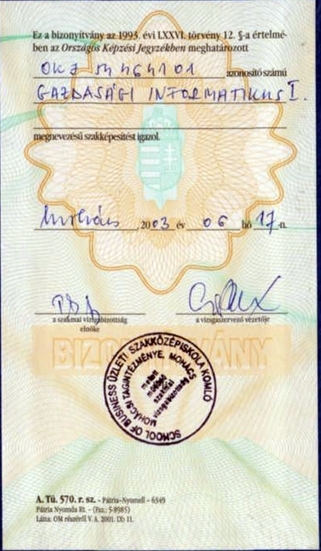 Ez a bizonyítvány az 1993. évi LXXVI. törvény 12. §-a értelmé-
ben az Országos Képzési Jegyzékben meghatározott
OKJ 54464101 azonosító számú
GAZDASÁGI INFORMATIKUS I.
megnevezésű szakképesítést igazol.
Mohács, 2003 év 06 hó 17-n.
a szakmai vizsgabizottság
elnöke
a vizsgaszervező vezetője
BIZONYÍTVÁNY
SCHOOL OF BUSINESS ÜZLETI SZAKKÖZÉPISKOLA KOMLÓ
MOHÁCSI TAGINTÉZMÉNYE, MOHÁCS
A. Tü. 570. r. sz. - Pátria-Nyomell - 6349
Pátria Nyomda Rt. - (Fax: 5-8985)
Látta: OM részéről V. A. 2001.